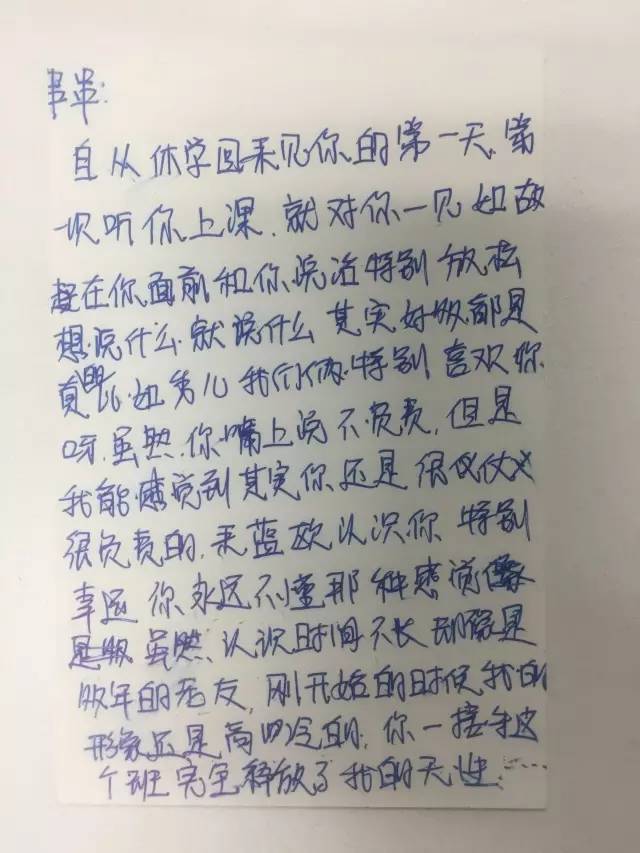 自从休学回来见你的第一天,第
一次听你上课,就对你一见如故
在你面前和你说话特别放松
想说什么就说什么 其实好多都是
真 比如 我们俩特别喜欢你
呀,虽然你嘴上说不负责,但是
我能感觉到其实你还是很仗义
很负责的,来蓝欧认识你 特别
幸运 你永远不懂那种感觉像
虽然认识时间不长 却像是
多年的老友,刚开始的时候我的
形象还是高冷的,你一接手这
个班完全释放了我的天性……